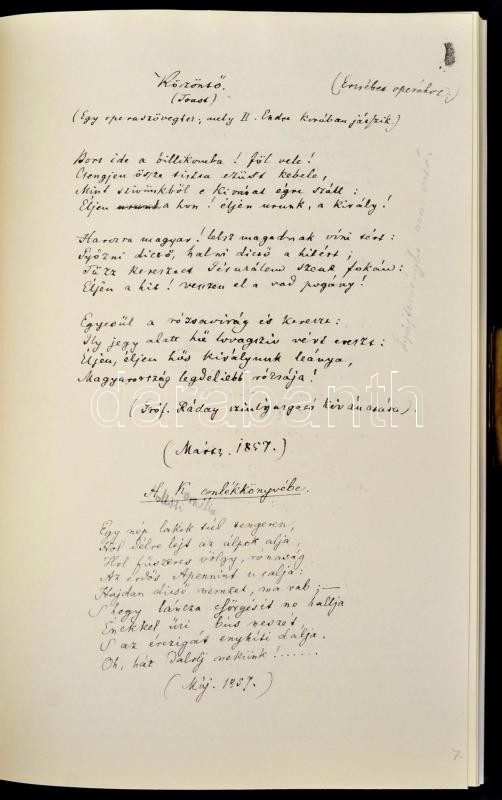 Köszöntő.
(Toast)
(Erzsébet operához)
(Egy operaszövegter, mely II. Endre korában játszik)
Bort ide a billikomba! Föl vele!
Csengjen össze tiszta ezüst kebele,
Mint szivünkből e kivánat égre száll:
Éljen a hon! éljen urunk, a király!
Harczra magyar! lelsz magadnak vívni tért:
Győzni dicső, halni dicső a hitért;
Tűzz keresztet Jérusálem szent fokán:
Éljen a hit! vesszen el a vad pogány!
Egyesül a rózsavirág és kereszt:
Ily jegy alatt hű lovagszív vért ereszt:
Éljen, éljen hős királyunk leánya,
Magyarország legdeliebb rózsája!
(Gróf. Ráday szinigazgató kivánatára)
(Mártz. 1857.)
H. K. emlékkönyvébe.
Hollósi Kornélia
Egy nép lakik túl tengeren,
Hol délre lejt az álpek alja,
Hol fűszeres völgy, rónaság
Az erdős Apennint uralja:
Hajdan dicső nemzet, ma rab; —
S hogy láncza csörgésit ne hallja
Énekkel űzi bús neszét
S az érczigát enyhíti dalja.
Oh, hát dalolj nekünk!......
(Máj. 1857.)
7
darabanth